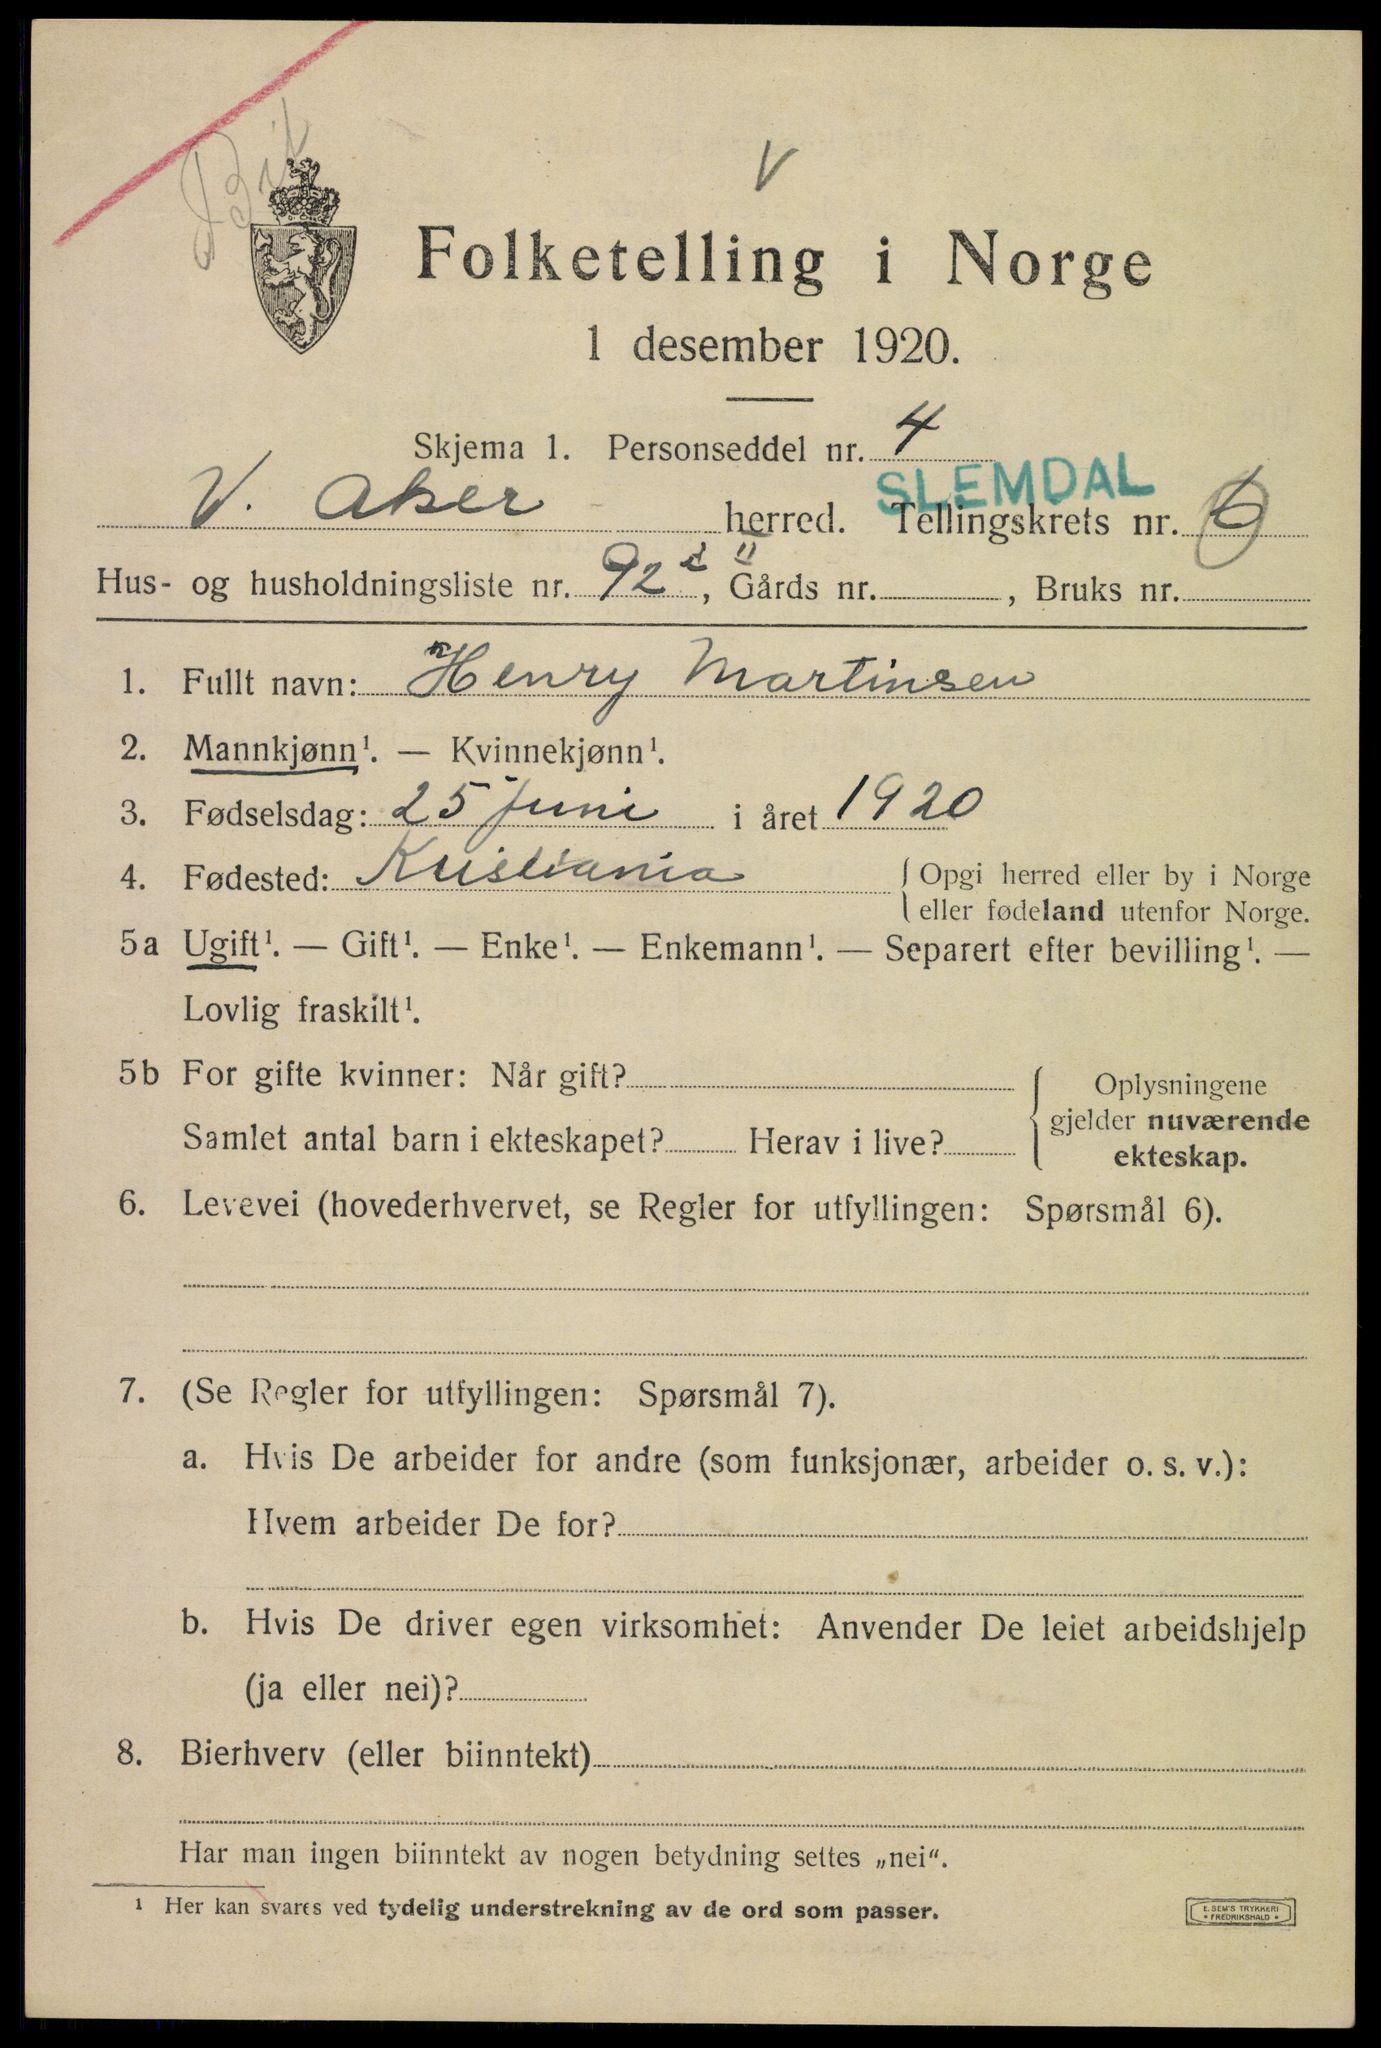 V
Folketelling i Norge
1 desember 1920.
Skjema 1. Personseddel nr. 4
SLEMDAL
V. Aker herred. Tellingskrets nr. 6
Hus- og husholdningsliste nr. 92 , Gårds nr. , Bruks nr.
1. Fullt navn: Henry Martinsen
2. Mannkjønn¹. — Kvinnekjønn¹.
3. Fødselsdag: 25 juni i året 1920
4. Fødested: Kristiania { Opgi herred eller by i Norge
eller fødeland utenfor Norge.
5a Ugift¹. — Gift¹. — Enke¹. — Enkemann¹. — Separert efter bevilling¹. —
Lovlig fraskilt¹.
5b For gifte kvinner: Når gift?
Samlet antal barn i ekteskapet? Herav i live?
Oplysningene
gjelder nuværende
ekteskap.
6. Levevei (hovederhvervet, se Regler for utfyllingen: Spørsmål 6).
7. (Se Regler for utfyllingen: Spørsmål 7).
a. Hvis De arbeider for andre (som funksjonær, arbeider o. s. v.):
Hvem arbeider De for?
b. Hvis De driver egen virksomhet: Anvender De leiet arbeidshjelp
(ja eller nei)?
8. Bierhverv (eller biinntekt)
Har man ingen biinntekt av nogen betydning settes „nei“.
¹ Her kan svares ved tydelig understrekning av de ord som passer.
E. SEM'S TRYKKERI
• FREDRIKSHALD •